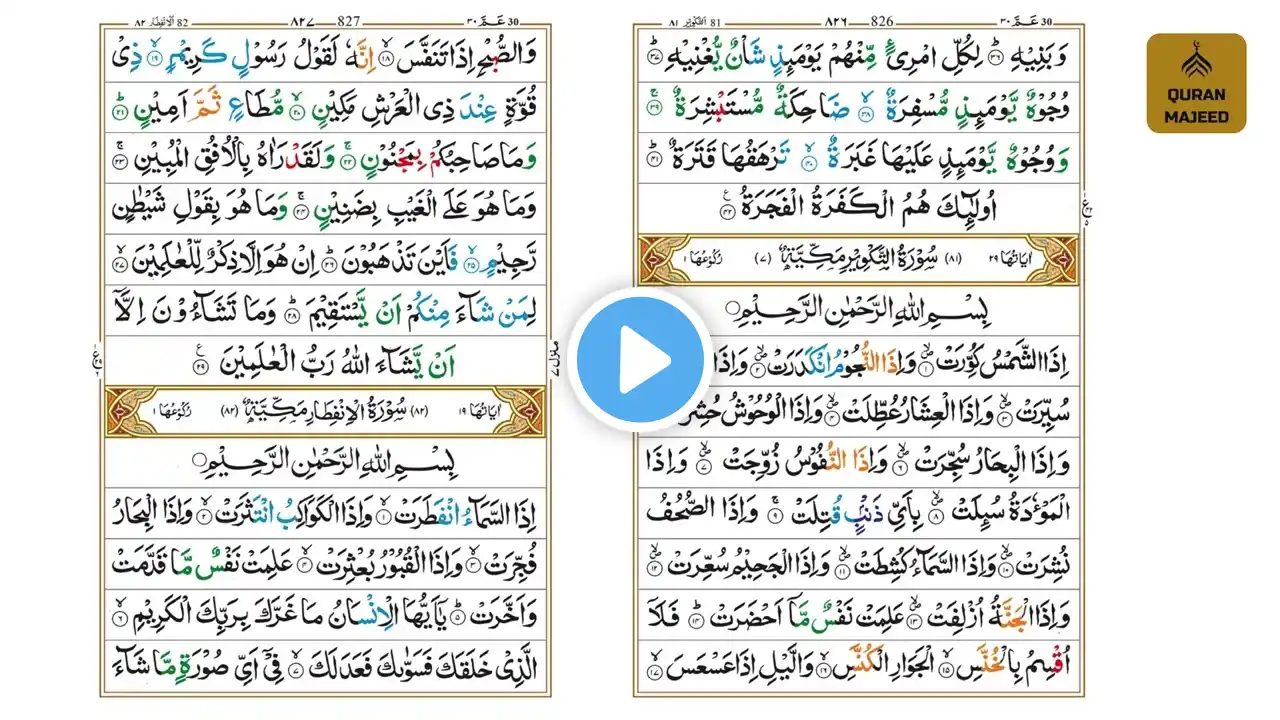 30 عَمّ ٣٠
٨٢٦ 826
٨١ التكوير 81
وَبَنِيْهِ ؕ﴿۳۶﴾ لِكُلِّ امْرِئٍ مِّنْهُمْ يَوْمَىِٕذٍ شَاْنٌ يُّغْنِيْهِ ؕ﴿۳۷﴾
وُجُوْهٌ يَّوْمَىِٕذٍ مُّسْفِرَةٌ ۙ﴿۳۸﴾ ضَاحِكَةٌ مُّسْتَبْشِرَةٌ ۚ﴿۳۹﴾
وَوُجُوْهٌ يَّوْمَىِٕذٍ عَلَيْهَا غَبَرَةٌ ۙ﴿۴۰﴾ تَرْهَقُهَا قَتَرَةٌ ؕ﴿۴۱﴾
اُولٰٓىِٕكَ هُمُ الْكَفَرَةُ الْفَجَرَةُ ﴿۴۲﴾
اٰيَاتُهَا ٢٩ (٨١) سُوْرَةُ التَّكْوِيْرِ مَكِّيَّةٌ (٧) رُكُوْعُهَا ١
بِسْمِ اللّٰهِ الرَّحْمٰنِ الرَّحِيْمِ
اِذَا الشَّمْسُ كُوِّرَتْ ۙ﴿۱﴾ وَاِذَا النُّجُوْمُ انْكَدَرَتْ ۙ﴿۲﴾ وَاِذَا
سُيِّرَتْ ۙ﴿۳﴾ وَاِذَا الْعِشَارُ عُطِّلَتْ ۙ﴿۴﴾ وَاِذَا الْوُحُوْشُ حُشِرَ
وَاِذَا الْبِحَارُ سُجِّرَتْ ۙ﴿۶﴾ وَاِذَا النُّفُوْسُ زُوِّجَتْ ۙ﴿۷﴾ وَاِذَا
الْمَوْءٗدَةُ سُىِٕلَتْ ۙ﴿۸﴾ بِاَيِّ ذَنْۢبٍ قُتِلَتْ ۚ﴿۹﴾ وَاِذَا الصُّحُفُ
نُشِرَتْ ۙ﴿۱۰﴾ وَاِذَا السَّمَآءُ كُشِطَتْ ۙ﴿۱۱﴾ وَاِذَا الْجَحِيْمُ سُعِّرَتْ ۙ﴿۱۲﴾
وَاِذَا الْجَنَّةُ اُزْلِفَتْ ۙ﴿۱۳﴾ عَلِمَتْ نَفْسٌ مَّاۤ اَحْضَرَتْ ؕ﴿۱۴﴾ فَلَاۤ
اُقْسِمُ بِالْخُنَّسِ ۙ﴿۱۵﴾ الْجَوَارِ الْكُنَّسِ ۙ﴿۱۶﴾ وَالَّيْلِ اِذَا عَسْعَسَ ۙ﴿۱۷﴾
30 عَمّ ٣٠
٨٢٧ 827
٨٢ الانفطار 82
وَالصُّبْحِ اِذَا تَنَفَّسَ ۙ﴿۱۸﴾ اِنَّهٗ لَقَوْلُ رَسُوْلٍ كَرِيْمٍ ۙ﴿۱۹﴾ ذِيْ
قُوَّةٍ عِنْدَ ذِي الْعَرْشِ مَكِيْنٍ ۙ﴿۲۰﴾ مُّطَاعٍ ثَمَّ اَمِيْنٍ ؕ﴿۲۱﴾
وَمَا صَاحِبُكُمْ بِمَجْنُوْنٍ ۚ﴿۲۲﴾ وَلَقَدْ رَاٰهُ بِالْاُفُقِ الْمُبِيْنِ ۚ﴿۲۳﴾
وَمَا هُوَ عَلَى الْغَيْبِ بِضَنِيْنٍ ۚ﴿۲۴﴾ وَمَا هُوَ بِقَوْلِ شَيْطٰنٍ
رَّجِيْمٍ ۙ﴿۲۵﴾ فَاَيْنَ تَذْهَبُوْنَ ؕ﴿۲۶﴾ اِنْ هُوَ اِلَّا ذِكْرٌ لِّلْعٰلَمِيْنَ ۙ﴿۲۷﴾
لِمَنْ شَآءَ مِنْكُمْ اَنْ يَّسْتَقِيْمَ ؕ﴿۲۸﴾ وَمَا تَشَآءُوْنَ اِلَّاۤ
اَنْ يَّشَآءَ اللّٰهُ رَبُّ الْعٰلَمِيْنَ ﴿۲۹﴾
اٰيَاتُهَا ١٩ (٨٢) سُوْرَةُ الْاِنْفِطَارِ مَكِّيَّةٌ (٨٢) رُكُوْعُهَا ١
بِسْمِ اللّٰهِ الرَّحْمٰنِ الرَّحِيْمِ
اِذَا السَّمَآءُ انْفَطَرَتْ ۙ﴿۱﴾ وَاِذَا الْكَوَاكِبُ انْتَثَرَتْ ۙ﴿۲﴾ وَاِذَا الْبِحَارُ
فُجِّرَتْ ۙ﴿۳﴾ وَاِذَا الْقُبُوْرُ بُعْثِرَتْ ۙ﴿۴﴾ عَلِمَتْ نَفْسٌ مَّا قَدَّمَتْ
وَاَخَّرَتْ ؕ﴿۵﴾ يٰۤاَيُّهَا الْاِنْسَانُ مَا غَرَّكَ بِرَبِّكَ الْكَرِيْمِ ۙ﴿۶﴾
الَّذِيْ خَلَقَكَ فَسَوّٰىكَ فَعَدَلَكَ ۙ﴿۷﴾ فِيْۤ اَيِّ صُوْرَةٍ مَّا شَآءَ
منزل ٧
QURAN
MAJEED